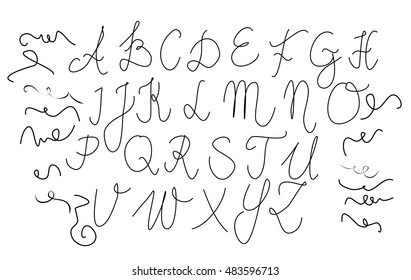 A B C D E F G H
I J K L M N O
P Q R S T U
V W X Y Z
shutterstock.com · 483596713